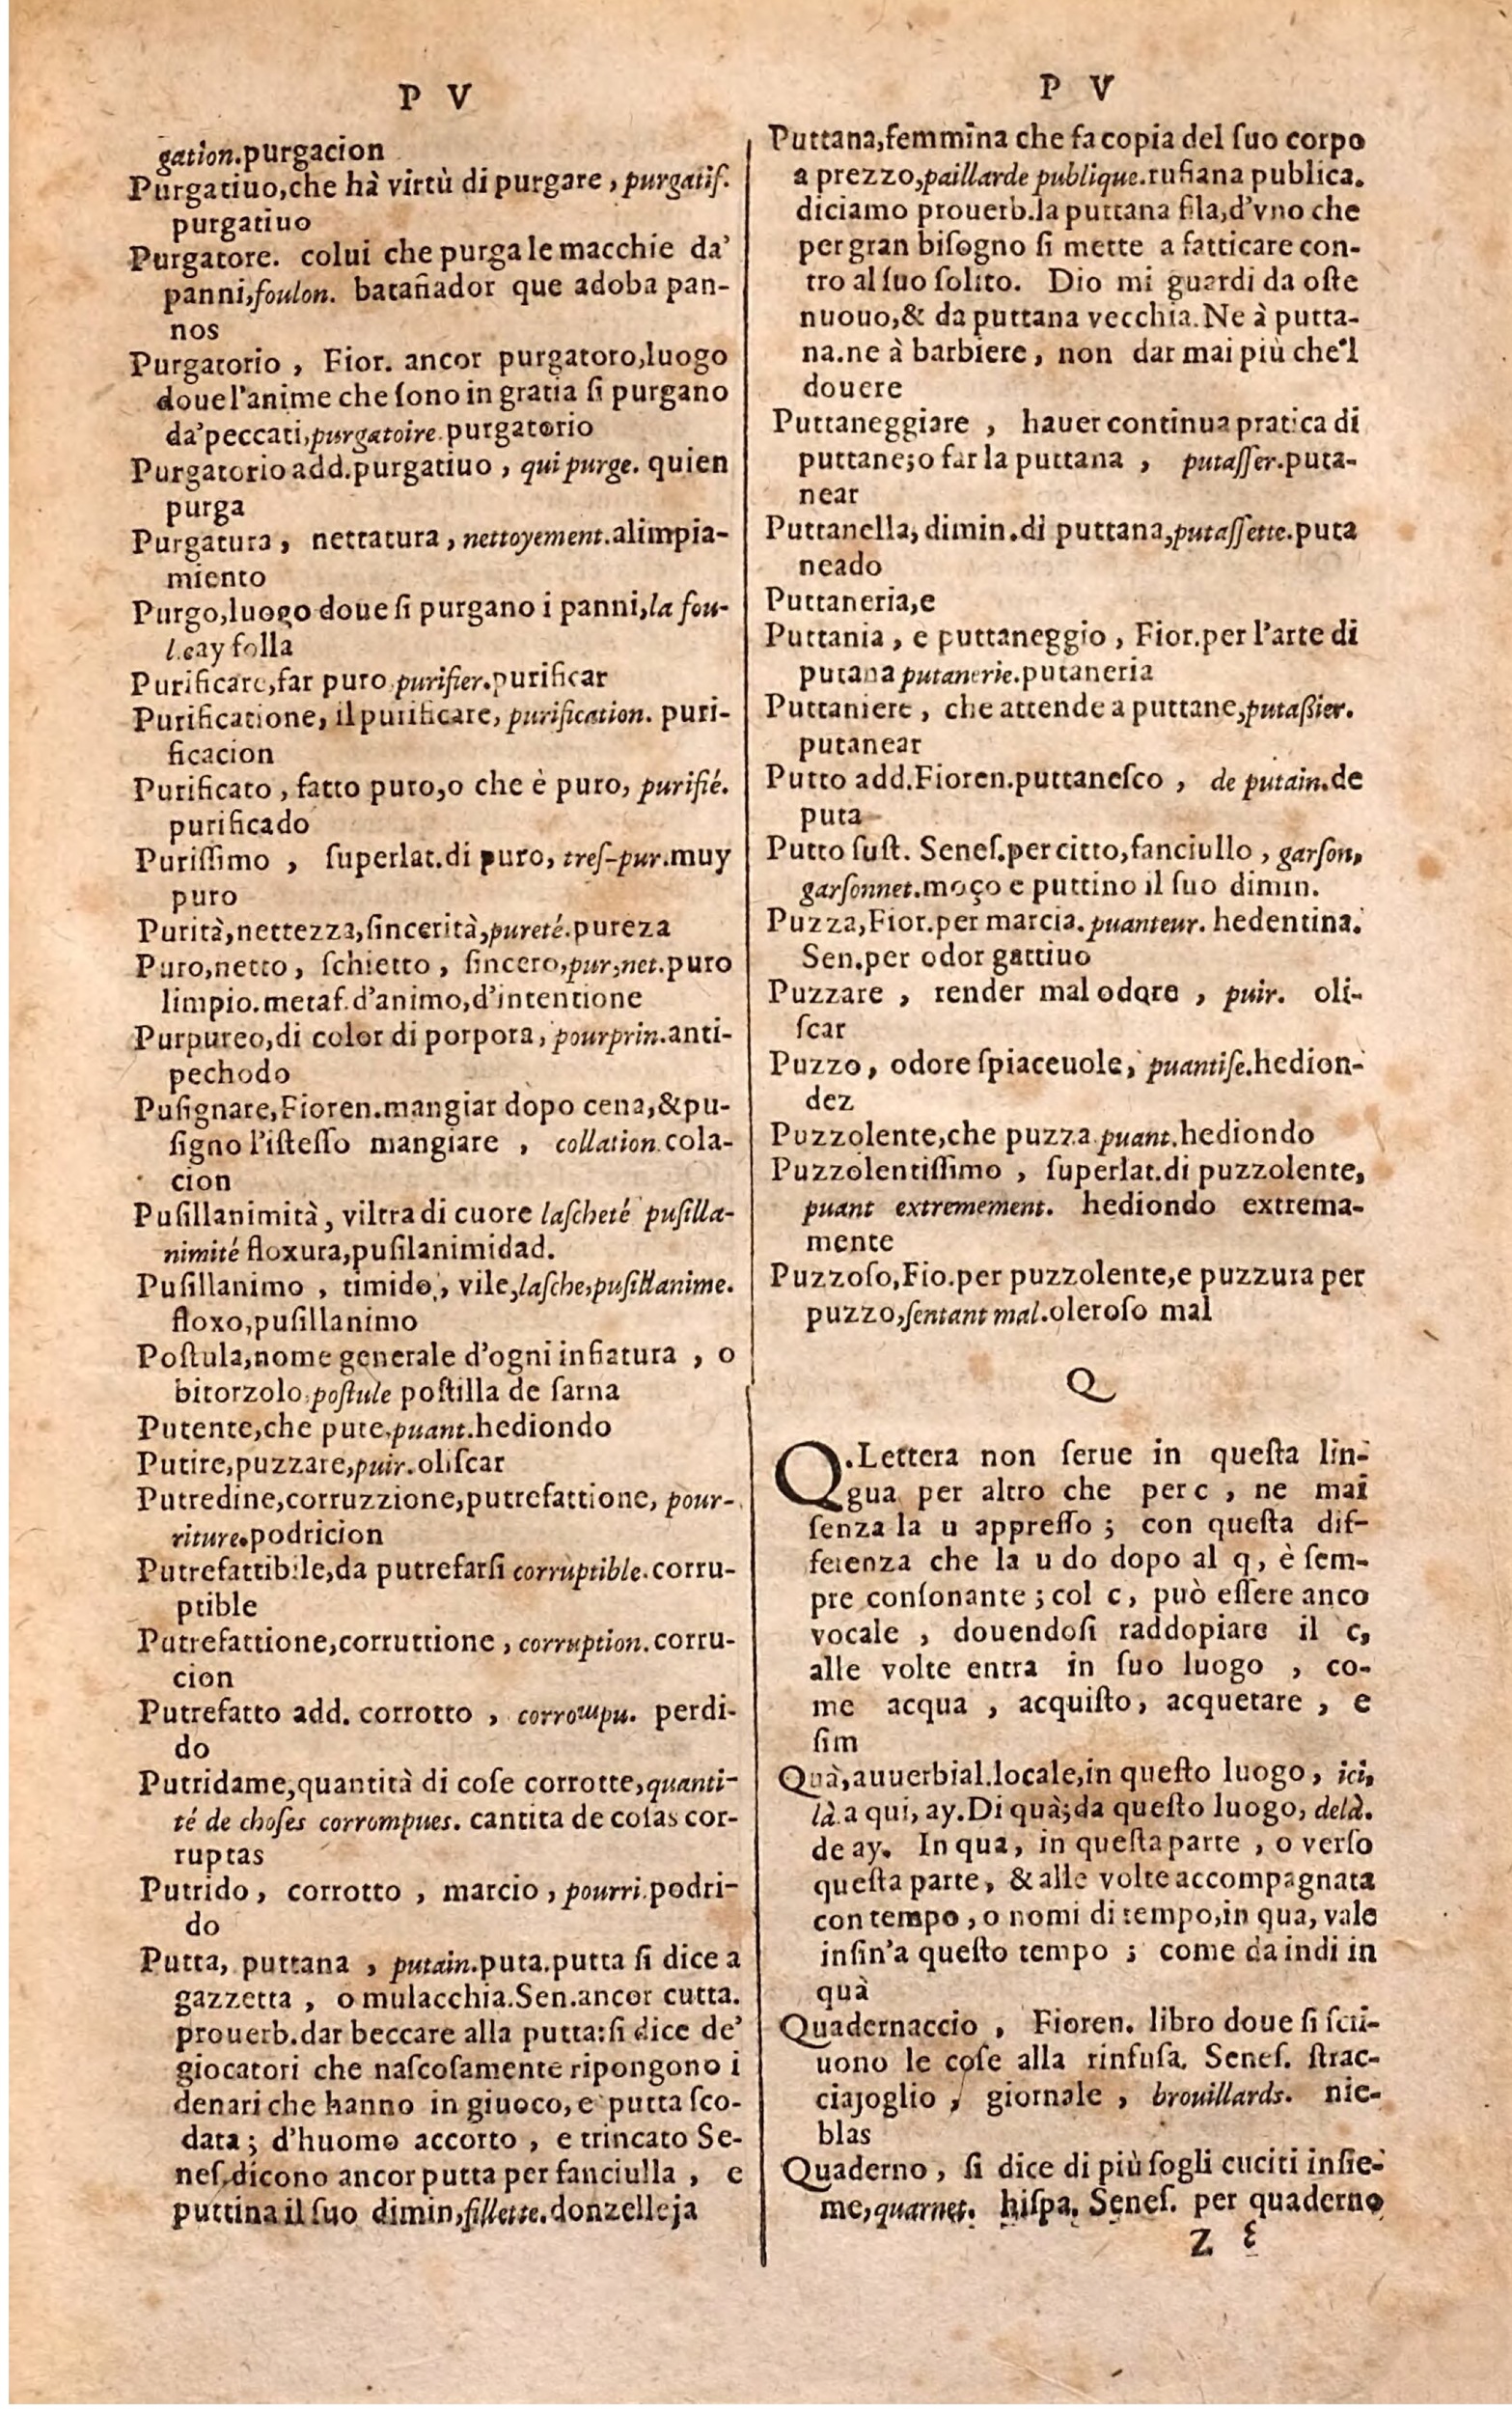 P V
gation.purgacion
Purgatiuo,che hà virtù di purgare, purgatif.
purgatiuo
Purgatore. colui che purga le macchie da'
panni,foulon. batañador que adoba pan-
nos
Purgatorio, Fior. ancor purgatoro,luogo
doue l'anime che ſono in gratia ſi purgano
da'peccati,purgatoire.purgatorio
Purgatorio add.purgatiuo, qui purge. quien
purga
Purgatura, nettatura, nettoyement.alimpia-
miento
Purgo,luogo doue ſi purgano i panni,la fou-
l.eay folla
Purificare,far puro.purifier.purificar
Purificatione, il purificare, purification. puri-
ficacion
Purificato, fatto puro,o che è puro, purifié.
purificado
Puriſſimo, ſuperlat.di puro, treſ-pur.muy
puro
Purità,nettezza,ſincerità,pureté.pureza
Puro,netto, ſchietto, ſincero,pur,net.puro
limpio.metaf.d'animo,d'intentione
Purpureo,di color di porpora, pourprin.anti-
pechodo
Puſignare,Fioren.mangiar dopo cena,&pu-
ſigno l'iſteſſo mangiare, collation.cola-
cion
Puſillanimità, viltra di cuore laſcheté puſilla-
nimité floxura,puſilanimidad.
Puſillanimo, timido, vile,laſche,puſillanime.
floxo,puſillanimo
Poſtula,nome generale d'ogni infiatura, o
bitorzolo.poſtule poſtilla de ſarna
Putente,che pute,puant.hediondo
Putire,puzzare,puir.oliſcar
Putredine,corruzzione,putrefattione, pour-
riture.podricion
Putrefattibile,da putrefarſi corruptible.corru-
ptible
Putrefattione,corruttione, corruption.corru-
cion
Putrefatto add. corrotto, corrompu. perdi-
do
Putridame,quantità di coſe corrotte,quanti-
té de choſes corrompues. cantita de coſas cor-
ruptas
Putrido, corrotto, marcio, pourri.podri-
do
Putta, puttana, putain.puta.putta ſi dice a
gazzetta, o mulacchia.Sen.ancor cutta.
prouerb.dar beccare alla putta:ſi dice de'
giocatori che naſcoſamente ripongono i
denari che hanno in giuoco, e putta ſco-
data; d'huomo accorto, e trincato Se-
neſ.dicono ancor putta per fanciulla, e
puttina il ſuo dimin,fillette.donzelleja
P V
Puttana,femmina che fa copia del ſuo corpo
a prezzo,paillarde publique.rufiana publica.
diciamo prouerb.la puttana fila,d'vno che
per gran biſogno ſi mette a fatticare con-
tro al ſuo ſolito. Dio mi guardi da oſte
nuouo,& da puttana vecchia.Ne à putta-
na.ne à barbiere, non dar mai più che'l
douere
Puttaneggiare, hauer continua pratica di
puttane;o far la puttana, putaſſer.puta-
near
Puttanella, dimin.di puttana,putaſſette.puta
neado
Puttaneria,e
Puttania, e puttaneggio, Fior.per l'arte di
putana putanerie.putaneria
Puttaniere, che attende a puttane,putaßier.
putanear
Putto add.Fioren.puttaneſco, de putain.de
puta
Putto ſuſt. Seneſ.per citto,fanciullo, garſon,
garſonnet.moço e puttino il ſuo dimin.
Puzza,Fior.per marcia.puanteur. hedentina.
Sen.per odor gattiuo
Puzzare, render mal odore, puir. oli-
ſcar
Puzzo, odore ſpiaceuole, puantiſe.hedion-
dez
Puzzolente,che puzza.puant.hediondo
Puzzolentiſſimo, ſuperlat.di puzzolente,
puant extremement. hediondo extrema-
mente
Puzzoſo,Fio.per puzzolente,e puzzura per
puzzo,ſentant mal.oleroſo mal
Q
Q.Lettera non ſerue in queſta lin-
gua per altro che per c, ne mai
ſenza la u appreſſo; con queſta dif-
ferenza che la u do dopo al q, è ſem-
pre conſonante; col c, può eſſere anco
vocale, douendoſi raddopiare il c,
alle volte entra in ſuo luogo, co-
me acqua, acquiſto, acquetare, e
ſim
Quà,auuerbial.locale,in queſto luogo, ici,
là.a qui, ay.Di quà;da queſto luogo, delà.
de ay. In qua, in queſta parte, o verſo
queſta parte, & alle volte accompagnata
con tempo, o nomi di tempo,in qua, vale
inſin'a queſto tempo; come da indi in
quà
Quadernaccio, Fioren. libro doue ſi ſcri-
uono le coſe alla rinfuſa. Seneſ. ſtrac-
ciajoglio, giornale, brouillards. nie-
blas
Quaderno, ſi dice di più fogli cuciti inſie-
me,quarnet. hiſpa. Seneſ. per quaderno
Z